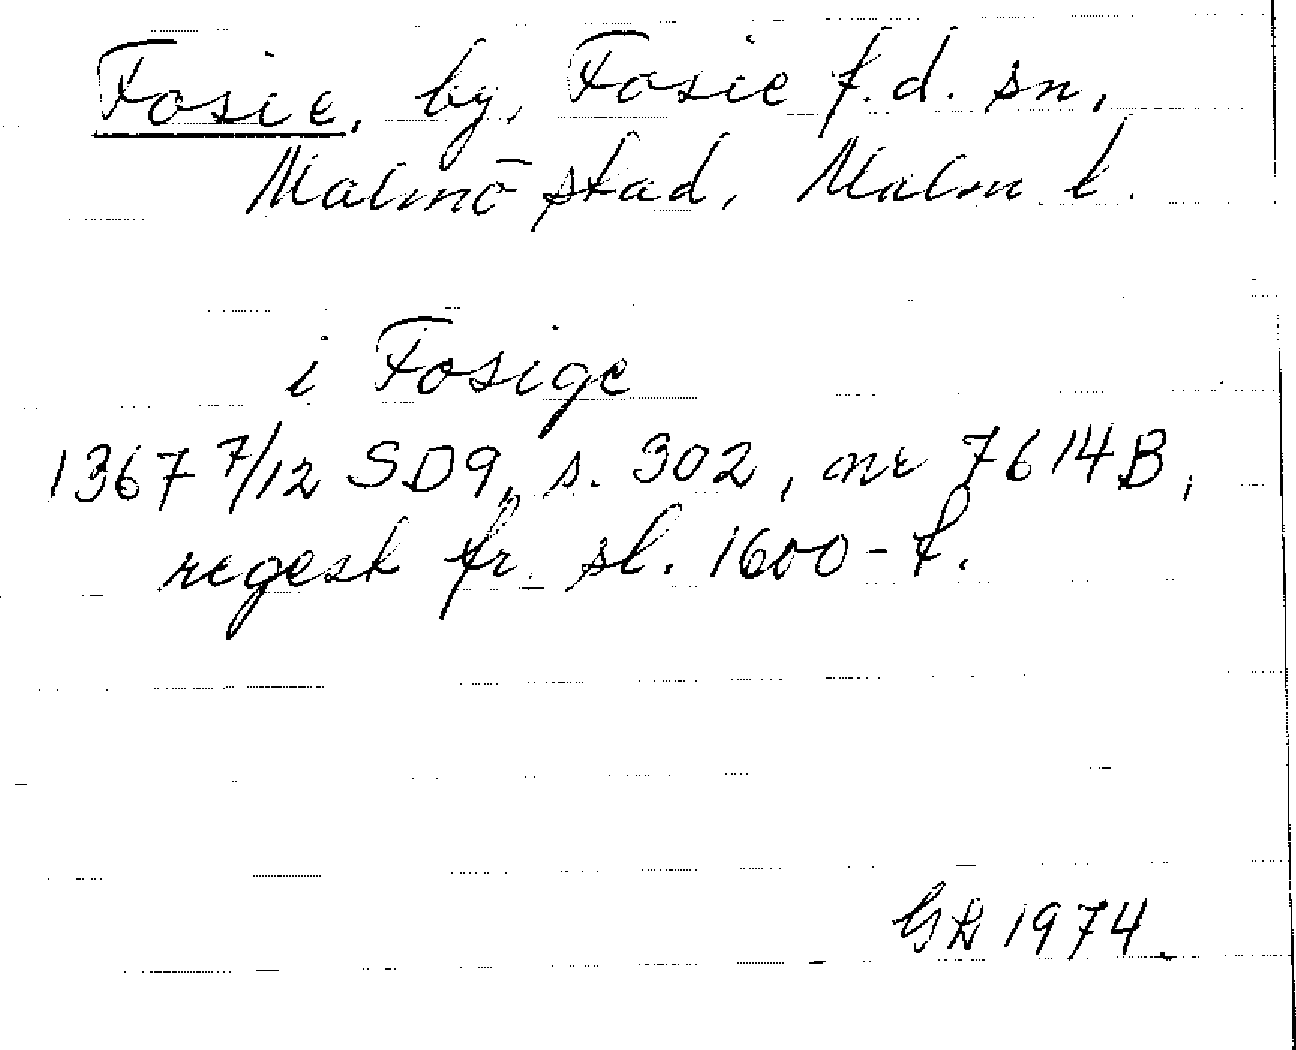 Fosie, by, Fosie f.d. sn,
Malmö stad, Malm l.
i Fosige
1367 7/12 SD9, s. 302, nr 7614B,
regest fr. sl. 1600-t.
1974